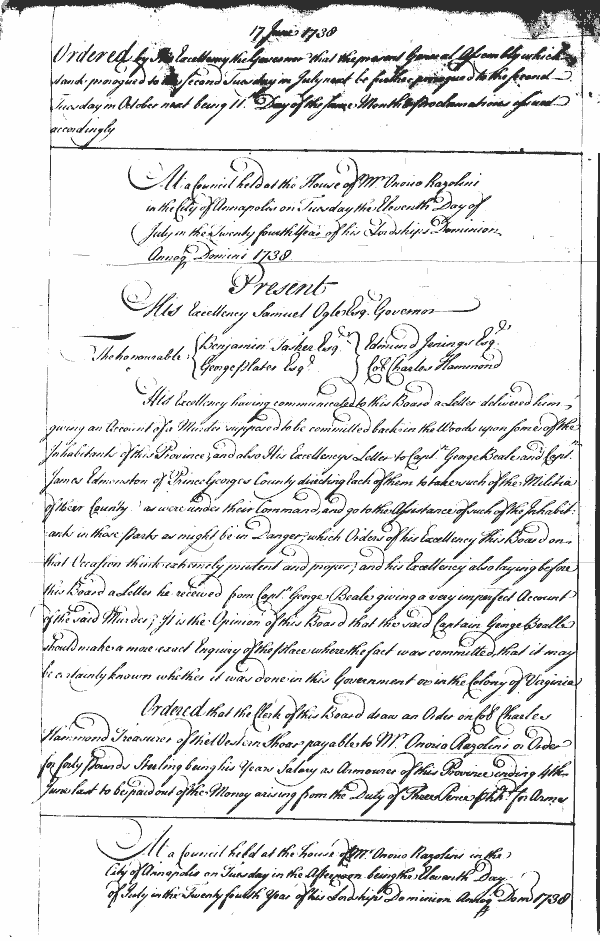 17 June 1738
Ordered by His Excellency the Governor that the present General Assembly which
stands prorogued to the second Tuesday in July next be further prorogued to the second
Tuesday in October next being 11th Day of the same Month & Proclamations issued
accordingly
At a Council held at the House of Mr Onorio Razolini
in the City of Annapolis on Tuesday the Eleventh Day of
July in the Twenty fourth Year of his Lordships Dominion
Annoq Domini 1738
Present
His Excellency Samuel Ogle Esqr Governor
The honourable { Benjamin Tasker Esqr } Edmund Jenings Esqr
George Plater Esqr Col Charles Hammond
His Excellency having communicated to this Board a Letter delivered him
giving an Account of a Murder supposed to be committed back in the Woods upon some of the
Inhabitants of this Province, and also His Excellencys Letter to Captn George Beale and Captn
James Edmonston of Prince Georges County directing Each of them to take such of the Militia
of their County as were under their Command, and go to the Assistance of such of the Inhabit-
ants in those Parts as might be in Danger, which Orders of his Excellency this Board on
that Occasion think extremely prudent and proper, and his Excellency also laying before
this Board a Letter he received from Captn George Beale giving a very imperfect Account
of the said Murder; It is the Opinion of this Board that the said Captain George Bealle
should make a more exact Enquiry of the place where the fact was committed, that it may
be certainly known whether it was done in this Government or in the Colony of Virginia
Ordered that the Clerk of this Board draw an Order on Col Charles
Hammond Treasurer of the Western Shoar payable to Mr Onorio Razolini or Order
for forty Pounds Sterling being his Years Salary as Armourer of this Province ending 4th
June last to be paid out of the Money arising from the Duty of Three Pence P hhd for Arms
At a Council held at the house of Mr Onorio Razolini in the
City of Annapolis on Tuesday in the Afternoon being the Eleventh Day
of July in the Twenty fourth Year of his Lordships Dominion Annoq Dom 1738